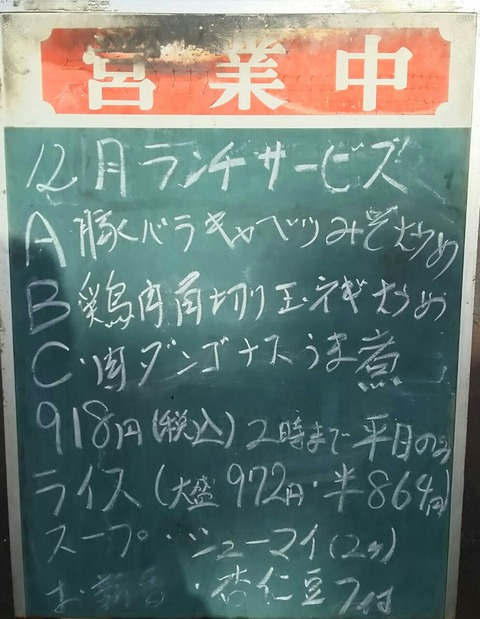 営業中
12月ランチサービス
A 豚バラキャベツみそ炒め
B 鶏肉角切り玉ネギ炒め
C・肉ダンゴナスうま煮
918円(税込)2時まで平日のみ
ライス(大盛972円・半864円)
スープ・シューマイ(2ヶ)
お新香・杏仁豆フ付